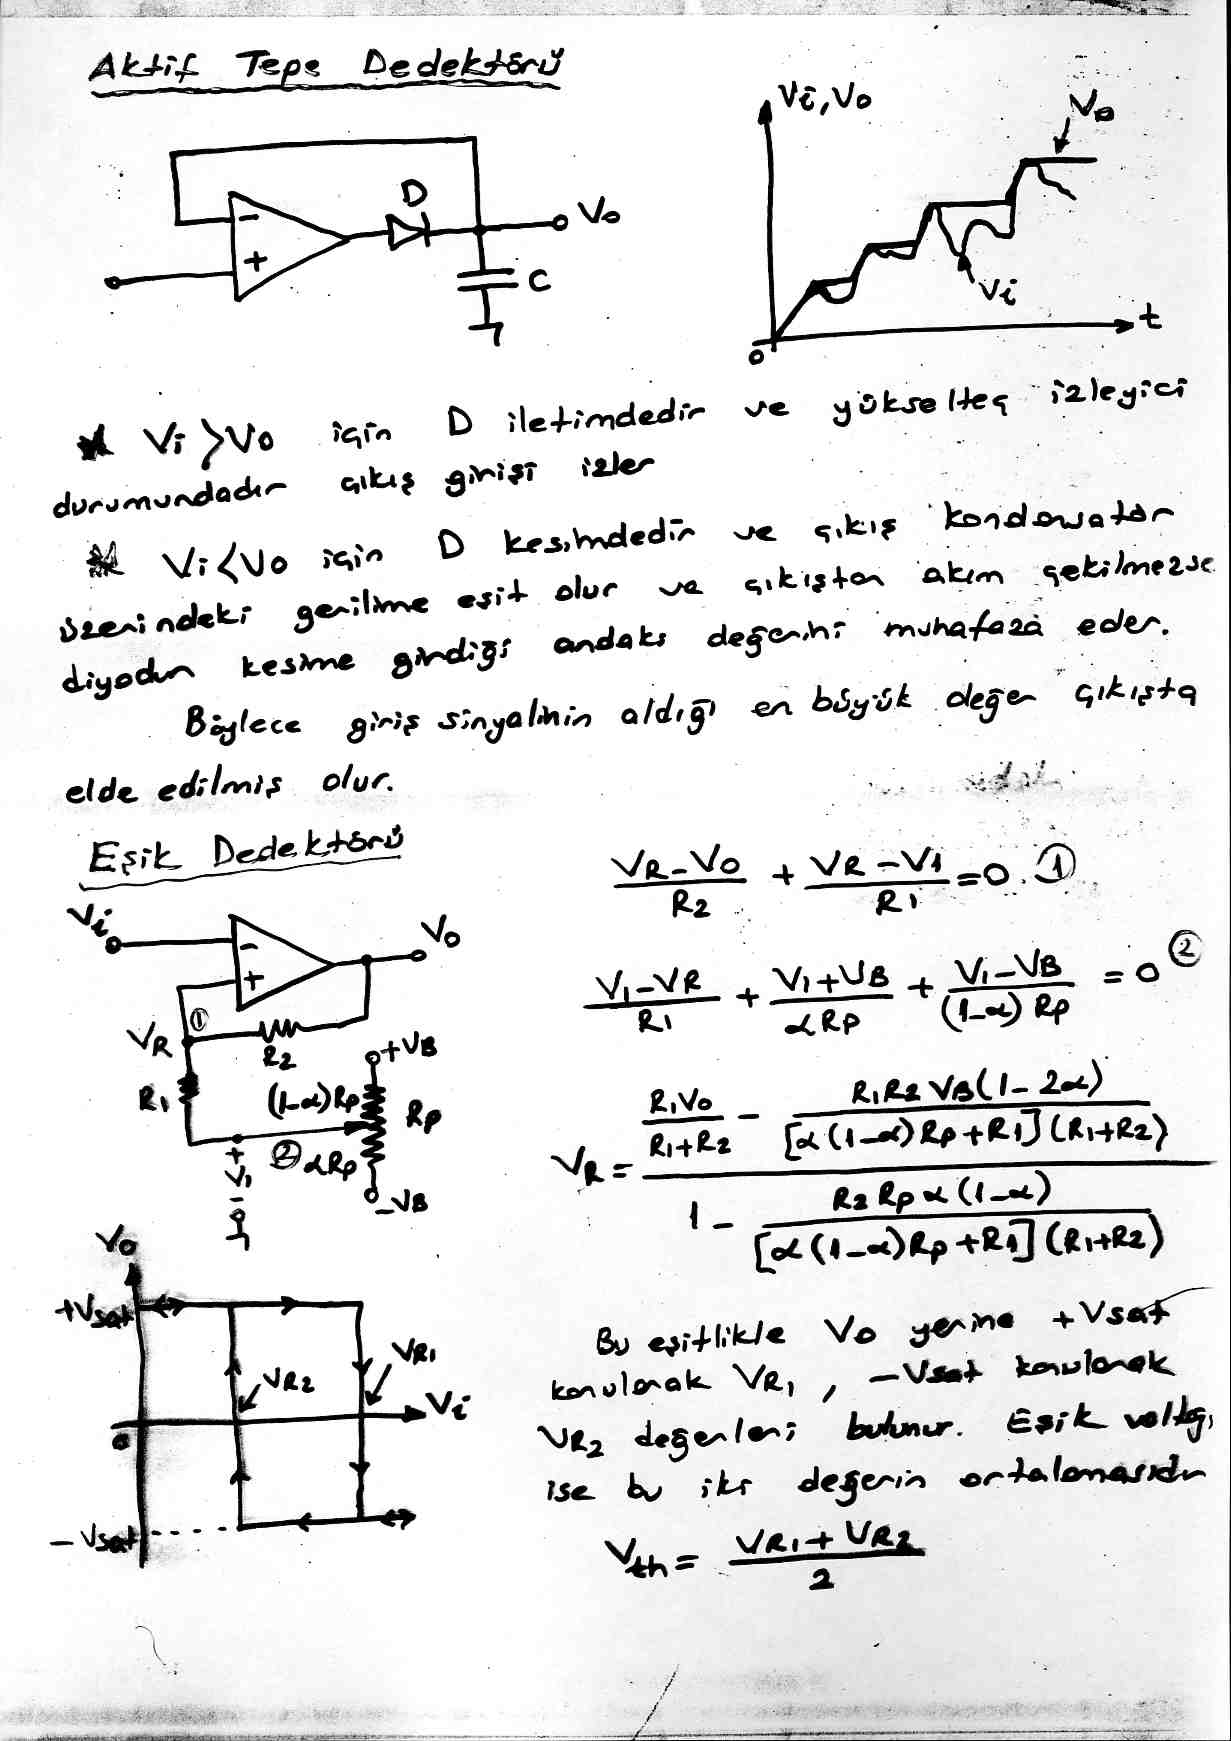 Aktif Tepe Dedektörü
Vi, Vo
Vo
D
Vo
-
+
C
Vi
t
0
Vi > Vo için D iletimdedir ve yükselteç izleyici
durumundadır çıkış girişi izler
Vi < Vo için D kesimdedir ve çıkış kondansatör
üzerindeki gerilime eşit olur ve çıkıştan akım çekilmezse
diyodun kesime girdiği andaki değerini muhafaza eder.
Böylece giriş sinyalinin aldığı en büyük değer çıkışta
elde edilmiş olur.
Eşik Dedektörü
Vi
-
+
Vo
①
VR
R2
R1
+VB
(1-α)Rp
Rp
② αRp
+
V1
-
-VB
(VR - Vo)/R2 + (VR - V1)/R1 = 0 ①
(V1 - VR)/R1 + (V1 + VB)/(αRp) + (V1 - VB)/((1-α) Rp) = 0 ②
VR = (R1Vo/(R1+R2) - R1R2 VB(1-2α)/([α(1-α)Rp+R1](R1+R2))) / (1 - R2 Rp α(1-α)/([α(1-α)Rp+R1](R1+R2)))
Vo
+Vsat
VR1
VR2
Vi
0
-Vsat
Bu eşitlikle Vo yerine +Vsat
konularak VR1, -Vsat konularak
VR2 değerleri bulunur. Eşik voltajı
ise bu iki değerin ortalamasıdır
Vth = (VR1 + VR2)/2